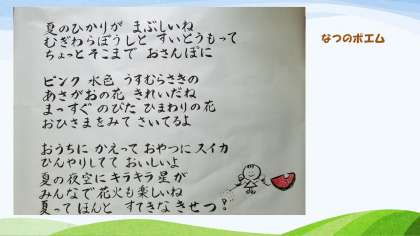 なつのポエム
夏のひかりが まぶしいね
むぎわらぼうしと すいとうもって
ちょっとそこまで おさんぽに
ピンク 水色 うすむらさきの
あさがおの花 きれいだね
まっすぐ のびた ひまわりの花
おひさまをみて さいてるよ
おうちに かえって おやつに スイカ
ひんやりしてて おいしいよ
夏の夜空に キラキラ星が
みんなで 花火も楽しいね
夏って ほんと すてきな きせつ?